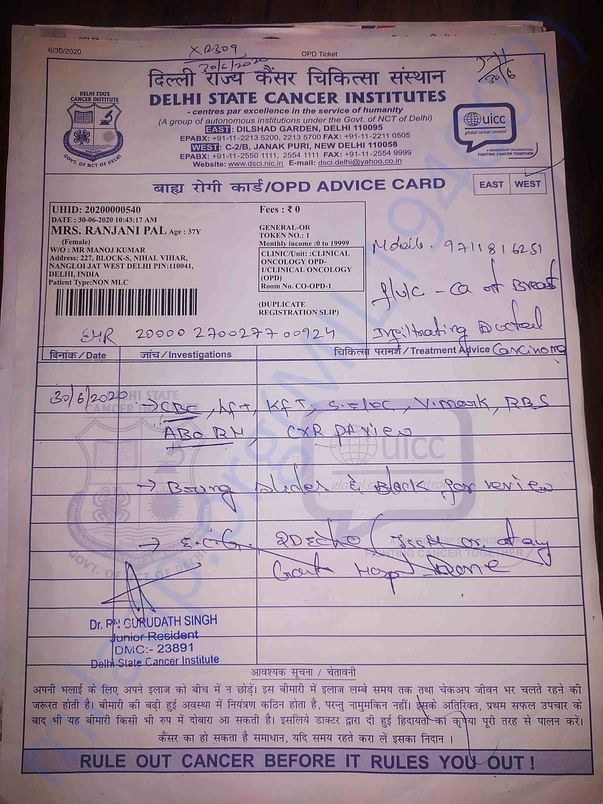 6/30/2020
OPD Ticket
30/6/2020
दिल्ली राज्य कैंसर चिकित्सा संस्थान
DELHI STATE CANCER INSTITUTES
- centres par excellence in the service of humanity
(A group of autonomous institutions under the Govt. of NCT of Delhi)
EAST: DILSHAD GARDEN, DELHI 110095
EPABX: +91-11-2213 5200, 2213 5700 FAX: +91-11-2211 0505
WEST: C-2/B, JANAK PURI, NEW DELHI 110058
EPABX: +91-11-2550 1111, 2554 1111 FAX: +91-11-2554 9999
Website: www.dsci.nic.in E-mail: dsci.delhi@yahoo.co.in
DELHI STATE
CANCER INSTITUTE
GOVT. OF NCT OF DELHI
uicc
global cancer control
FIGHTING CANCER TOGETHER
बाह्य रोगी कार्ड/OPD ADVICE CARD
EAST WEST
UHID: 20200000540
DATE : 30-06-2020 10:43:17 AM
MRS. RANJANI PAL Age : 37Y
(Female)
W/O : MR MANOJ KUMAR
Address: 227, BLOCK-S, NIHAL VIHAR,
NANGLOI JAT WEST DELHI PIN:110041,
DELHI, INDIA
Patient Type:NON MLC
Fees : ₹ 0
GENERAL-OR
TOKEN NO. : 1
Monthly income :0 to 19999
CLINIC/Unit: :CLINICAL
ONCOLOGY OPD-
1/CLINICAL ONCOLOGY
(OPD)
Room No. CO-OPD-1
(DUPLICATE
REGISTRATION SLIP)
Mobile. 9711816251
f/u/c - Ca of Breast
Infiltrating Ductal
Carcinoma
EHR 20000 2700277 00924
दिनांक / Date
जांच / Investigations
चिकित्सा परामर्श / Treatment Advice
30/6/2020
→ CBC, LFT, KFT, V. mark, RBS
ABO RH, CXR PA view
→ Bring slides & Block for review
→ E.C.G. 2D Echo any
Govt Hosp
Dr. PH GURUDATH SINGH
Junior Resident
DMC:- 23891
Delhi State Cancer Institute
आवश्यक सूचना / चेतावनी
अपनी भलाई के लिए अपने इलाज को बीच में न छोड़ें। इस बीमारी में इलाज लम्बे समय तक तथा चेकअप जीवन भर चलते रहने की
जरूरत होती है। बीमारी की बढ़ी हुई अवस्था में नियंत्रण कठिन होता है, परन्तु नामुमकिन नहीं। इसके अतिरिक्त, प्रथम सफल उपचार के
बाद भी यह बीमारी किसी भी रुप में दोबारा आ सकती है। इसलिये डाक्टर द्वारा दी हुई हिदायतों का कृपया पूरी तरह से पालन करें।
कैंसर का हो सकता है समाधान, यदि समय रहते करा लें इसका निदान ।
RULE OUT CANCER BEFORE IT RULES YOU OUT !